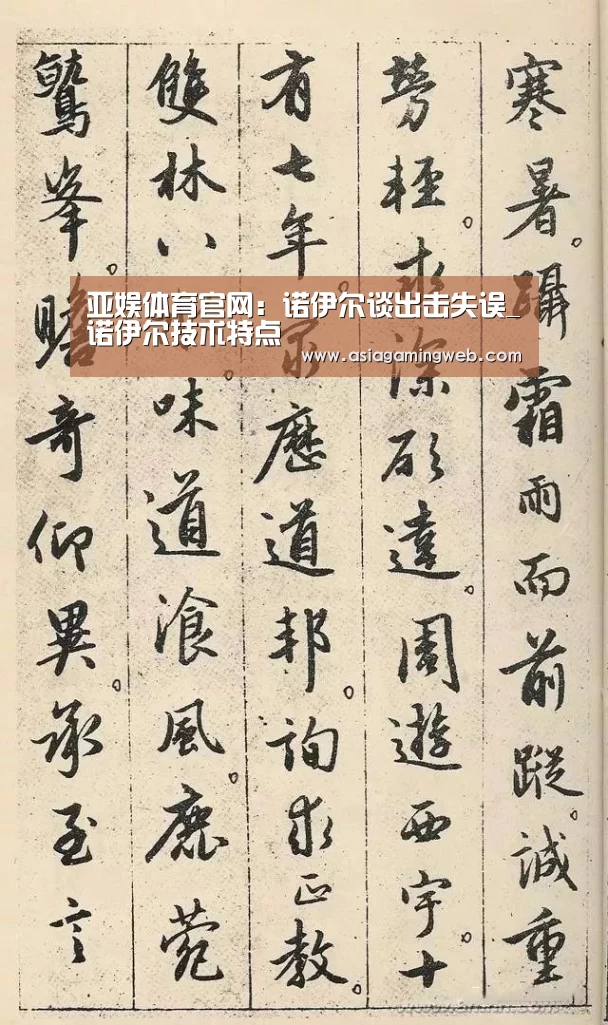 寒暑。躡霜雨而前蹤。誠重
勞輕。求深願達。周遊西宇。十
有七年。歷道邦。詢求正教。
雙林八味道飡風。鹿菀
鷲峯。瞻奇仰異。承至言
亚娱体育官网：诺伊尔谈出击失误_
诺伊尔技术特点
www.asiagamingweb.com